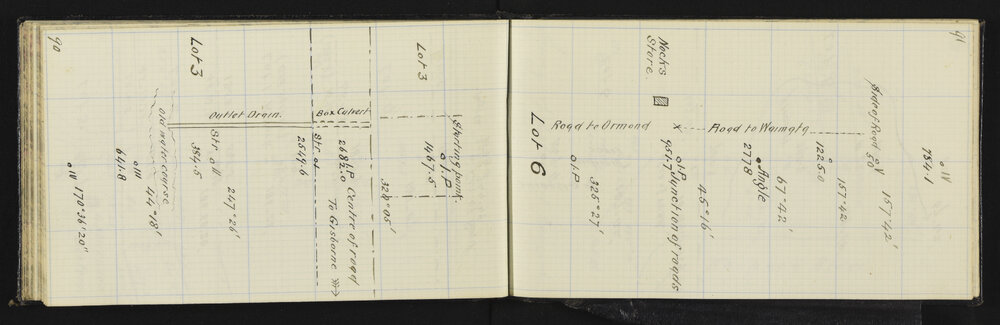 90
Lot 3
Outlet Drain.
Box Culvert
Lot 3
Old water course
Str. o IV
384.5
247° 26'
Str. o I
2549.6
o I.P Centre of road
To Gisborne
Starting point.
o I.P
1467.5
328° 05'
o IV
641.8
414° 18'
o IV
170° 36' 20"
91
Nock's
Store.
Lot 6
Road to Ormond
x
Road to Waimata
o I.P
325° 27'
o I.P Junction of roads
951.7
45° 16'
o Angle
2778
67° 42'
o
1225.0
157° 42'
Side of Road
50
157° 42'
o IV
784.1